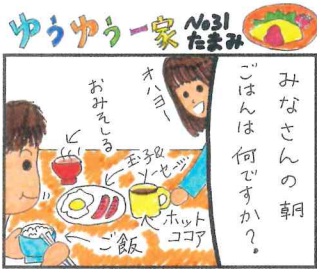 ゆうゆう一家
No31
たまみ
みなさんの朝
ごはんは何ですか?
オハヨー
おみそしる
玉子&
ソーセージ
ホット
ココア
ご飯